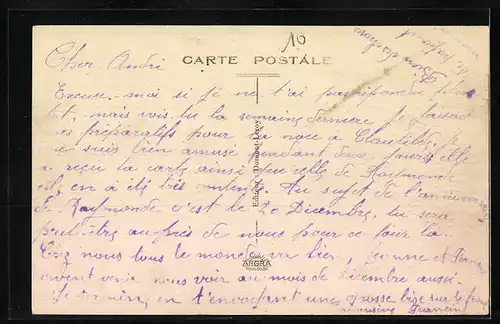 10
CARTE POSTALE
Cher André
Excuse-moi si je ne t'ai pas répondu plus
tôt, mais vois-tu la semaine dernière je faisais
les préparatifs pour la noce à Clotilde, je
me suis bien amusé pendant deux jours, elle
a reçu ta carte ainsi que celle de Raymonde
et en a été très contente. Au sujet de l'anniversaire
de Raymonde c'est le 20 Décembre, tu sera
peut-être auprès de nous pour ce jour là.
Chez nous tous le monde va bien, et
doivent venir nous voir au mois de décembre aussi.
Je termine, en t'envoyant une grosse bise sur le
cousine Francine
Edition
ARGRA
TOULOUSE